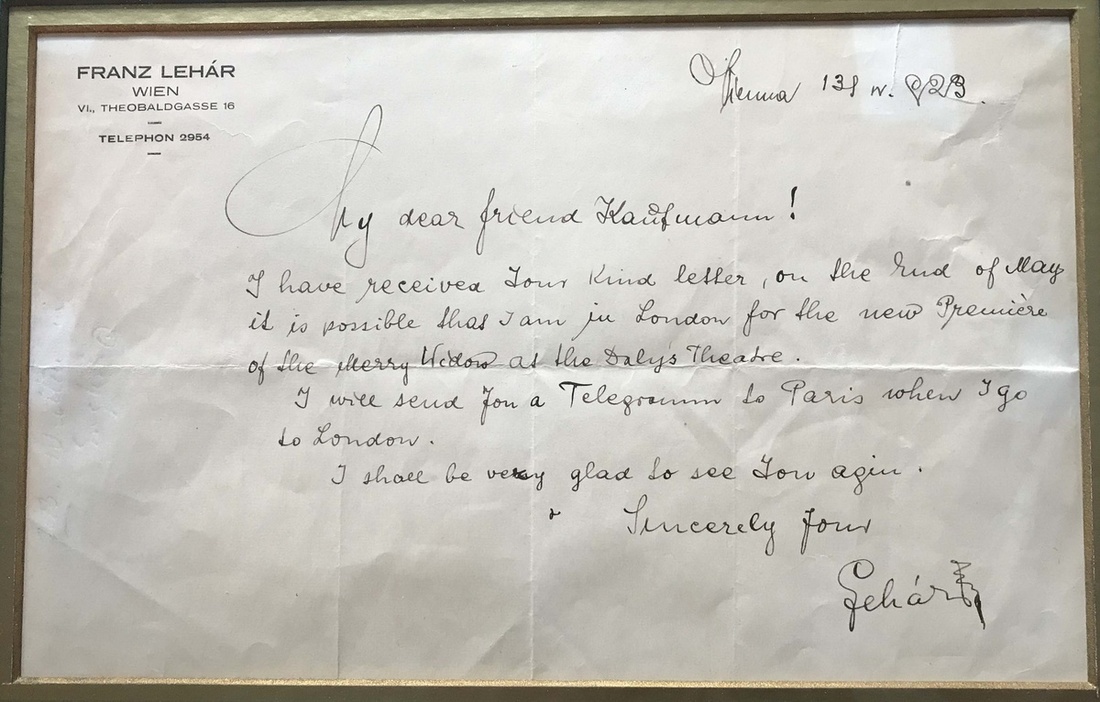 FRANZ LEHÁR
WIEN
VI., THEOBALDGASSE 16
TELEPHON 2954
Vienna 13/ IV. 923.
My dear friend Kaufmann!
I have received Your Kind letter, on the End of May
it is possible that I am in London for the new Première
of the Merry Widow at the Dalys Theatre.
I will send You a Telegramm to Paris when I go
to London.
I shall be very glad to see You agin.
Sincerely Your
Lehár